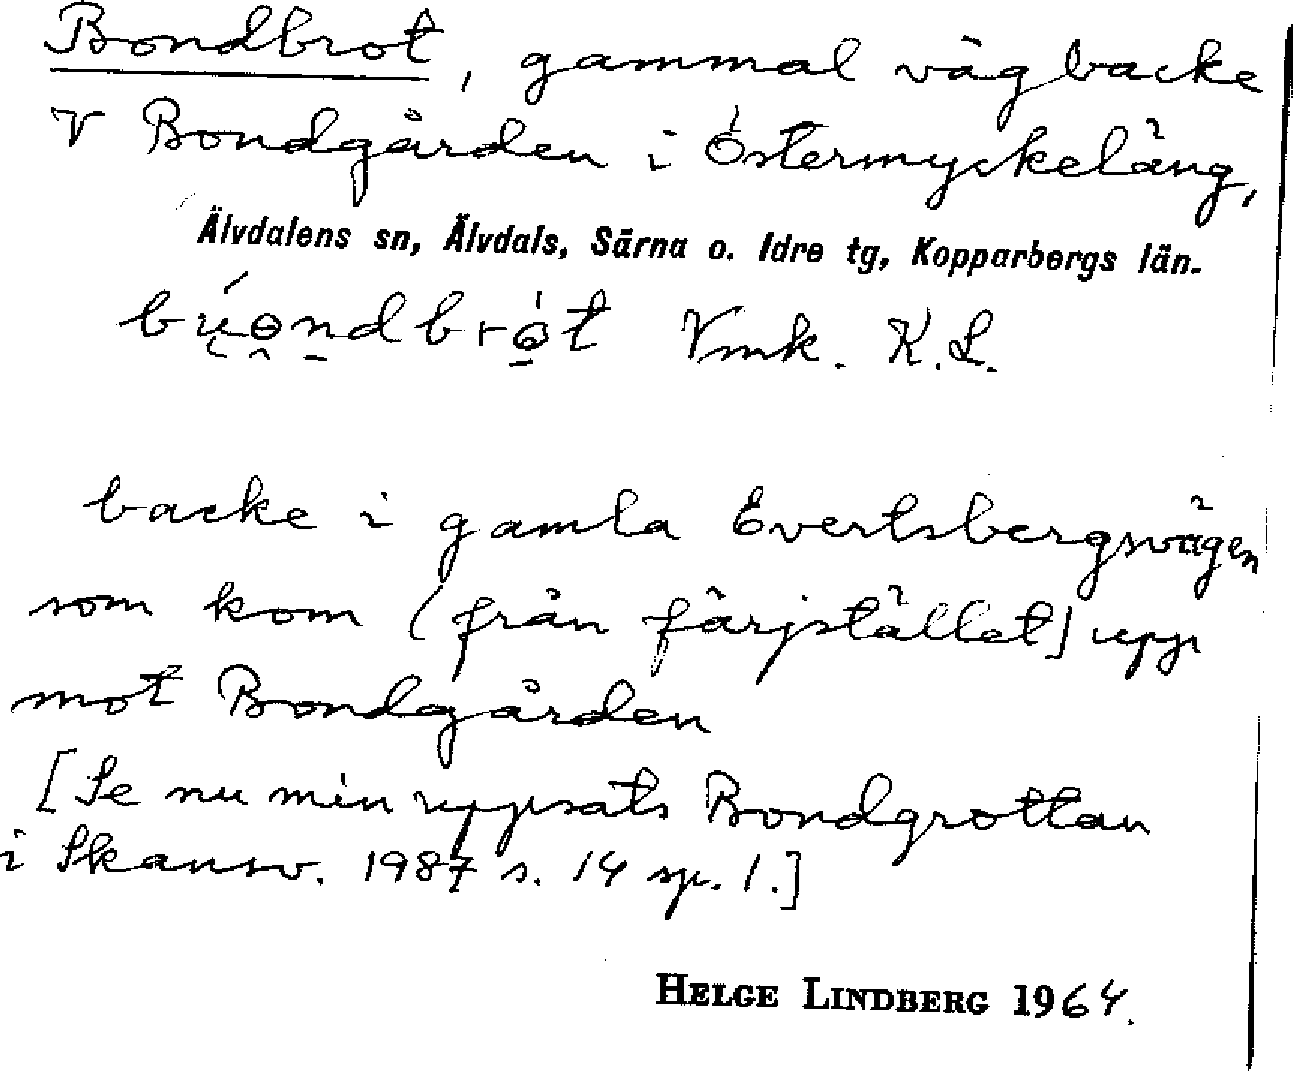 Bondbrot, gammal vägbacke
V Bondgården i Östermyckeläng,
Älvdalens sn, Älvdals, Särna o. Idre tg, Kopparbergs län.
Vmk. K.L.
backe i gamla Evertsbergsvägen
som kom (från färjstället) upp
mot Bondgården
[Se nu min uppsats Bondgrottan
i Skansv. 1987 s. 14 sp. 1.]
HELGE LINDBERG 1964.